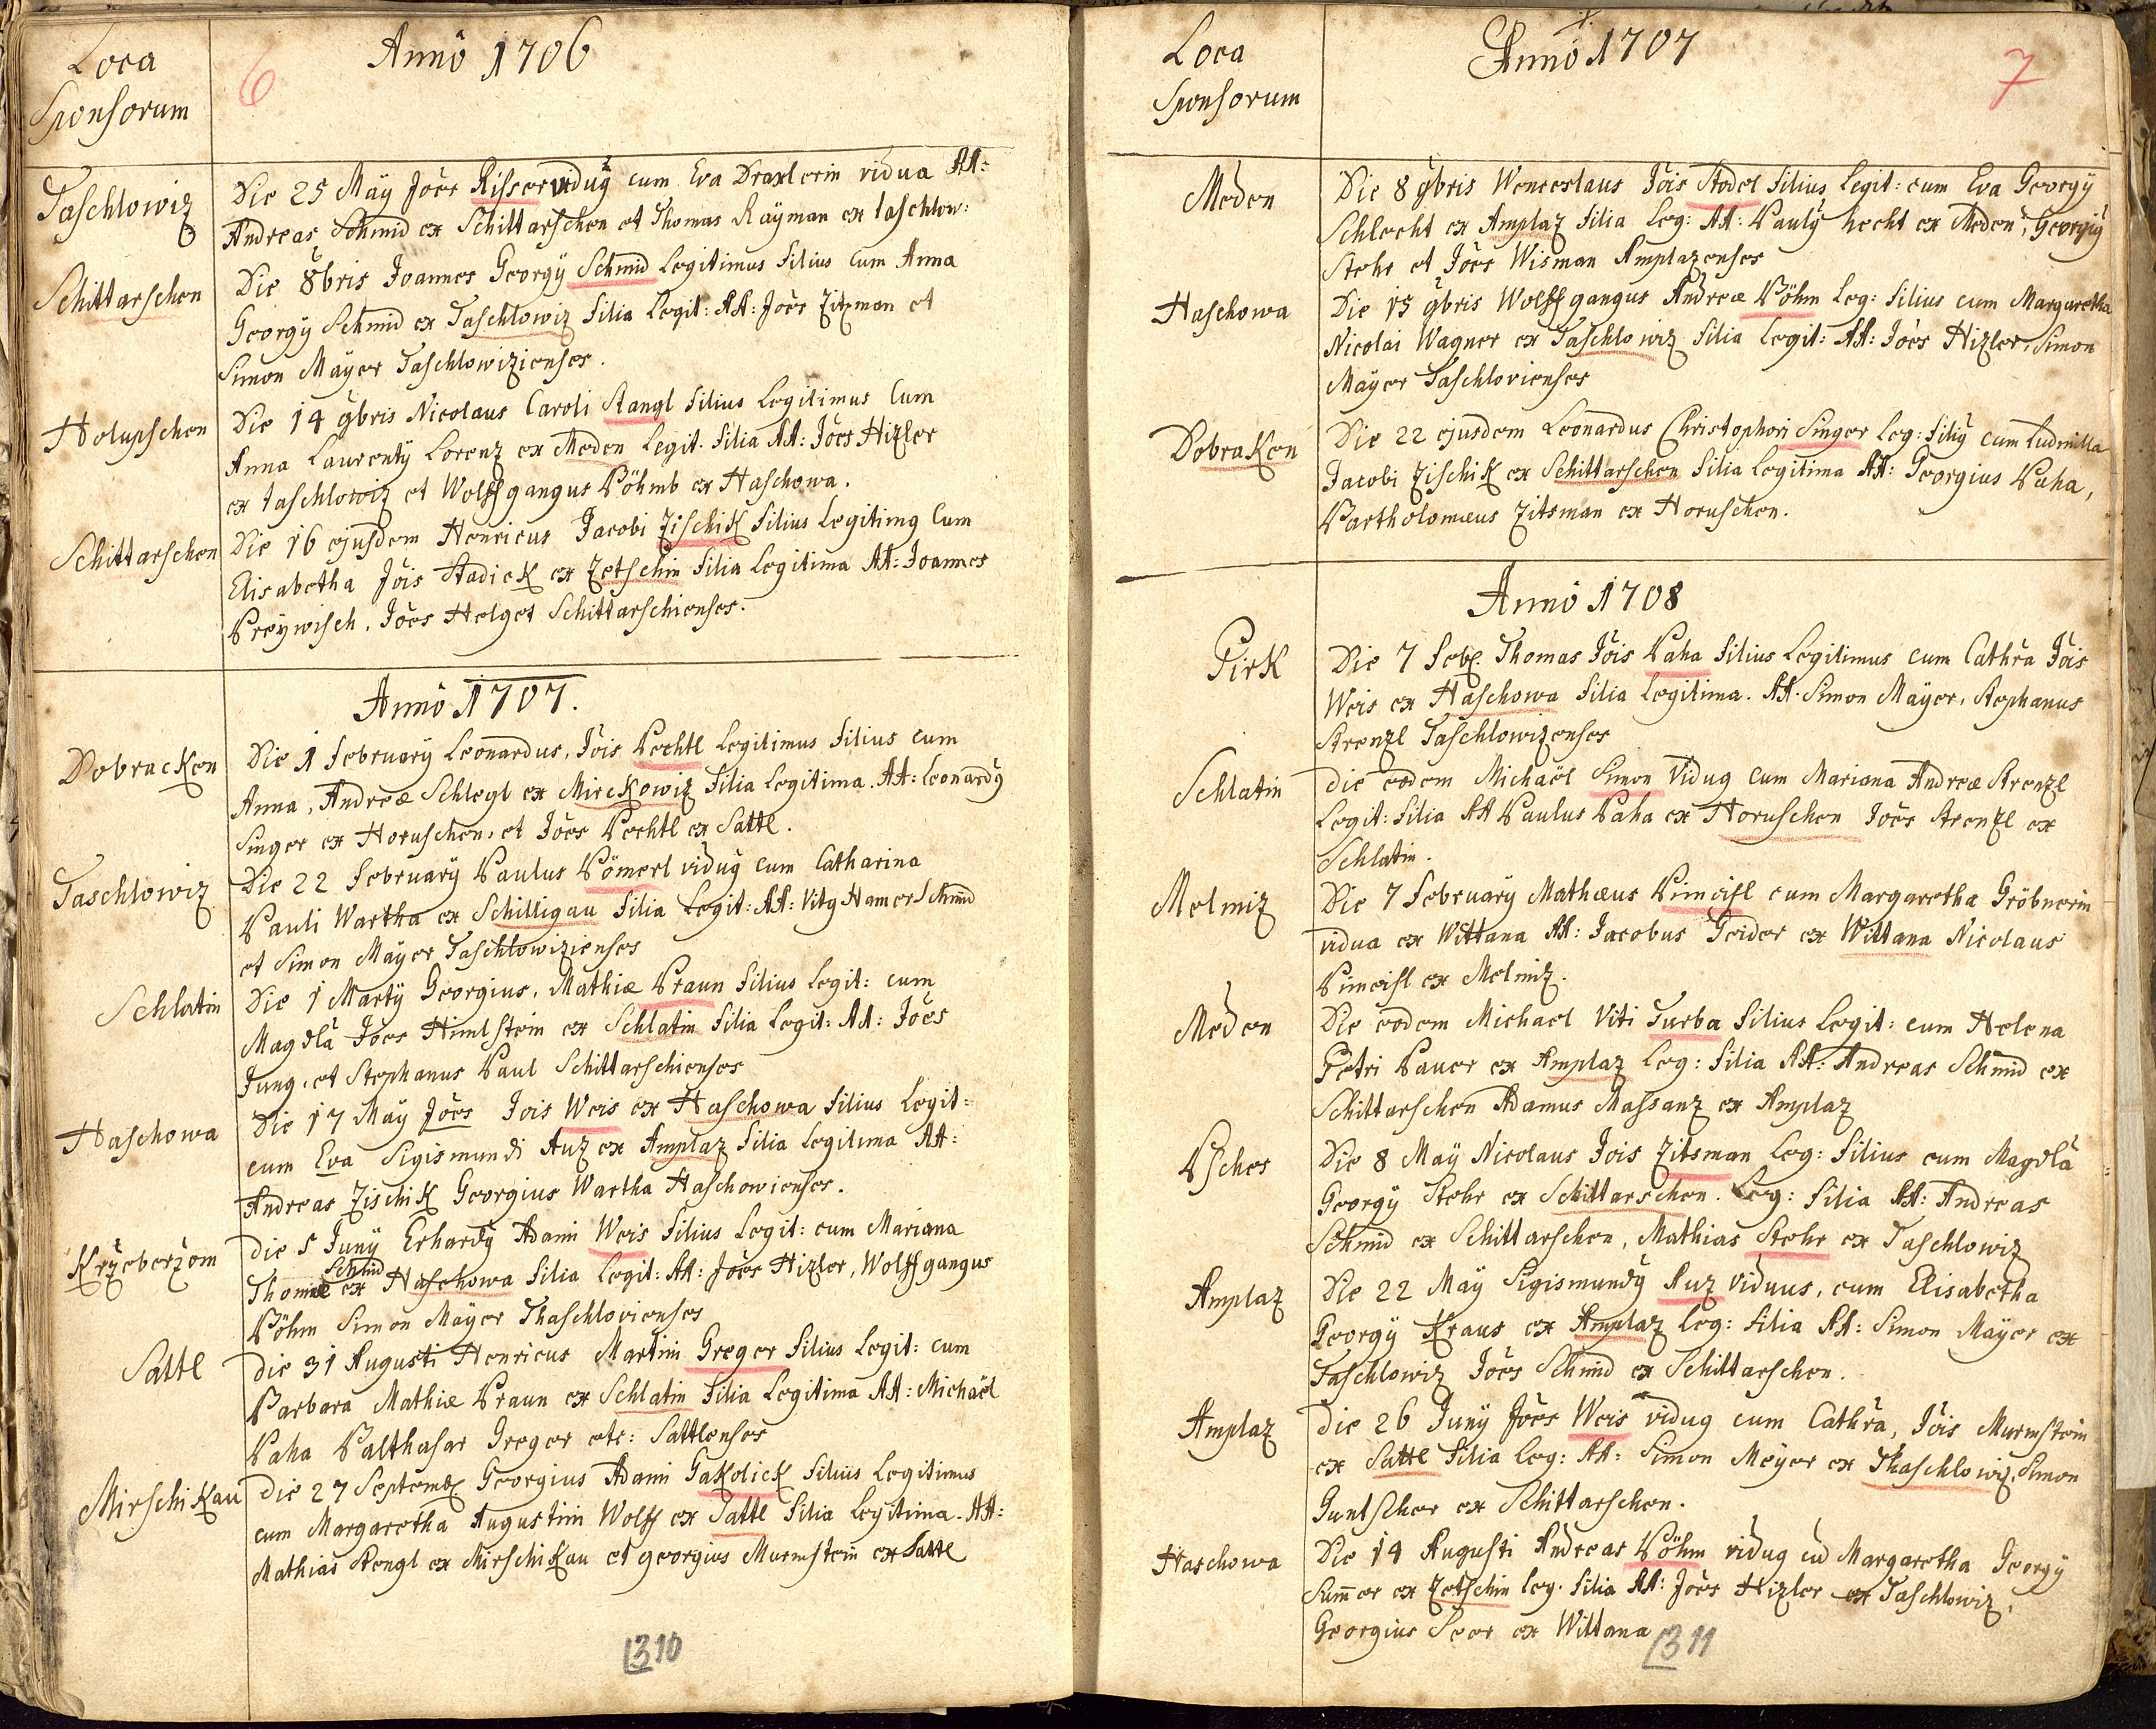 Loca
Sponsorum
6
Anno 1706
Taschlowiz
Die 25 Maÿ Joes Risser vidug cum Eva Draxlerin vidua AA:
Andreas Schmid ex Schittarschen et Thomas Raÿman ex taschlow:
Schittarschen
Die 8bris Joannes Georgÿ Schmid Legitimus Filius Cum Anna
Georgÿ Schmid ex Taschlowiz Filia Legit: AA: Joes Zitzman et
Simon Maÿer Taschlowizienses.
Holupschen
Die 14 9bris Nicolaus Caroli Stangl Filius Legitimus Cum
Anna Laurentÿ Lorenz ex Meden Legit. Filia AA: Joes Hizler
ex taschlowiz et Wolffgangus Böhmb ex Haschowa.
Schittarschen
Die 16 ejusdem Henricus Jacobi Zischik Filius Legitimg Cum
Elisabetha Jois Stadick ex Zetschin Filia Legitima AA: Joannes
Preÿwisch, Joes Helget Schittarschienses.
Anno 1707.
Dobracken
Die 1 Februarÿ Leonardus, Jois Pechtl Legitimus Filius cum
Anna, Andreæ Schlegl ex Mirckowiz Filia Legitima. AA: Leonardg
Singer ex Horuschen, et Joes Pechtl ex Sattl.
Taschlowiz
Die 22 Februarÿ Paulus Pömerl vidug cum Catharina
Pauli Wartha ex Schilligau Filia Legit: AA: Vitg Hamerschmid
et Simon Maÿer Taschlowizienses
Schlatin
Die 1 Martÿ Georgius, Mathiæ Praun Filius Legit: cum
Magdla Joes Himlstein ex Schlatin Filia Legit: AA: Joes
Jung, et Stephanus Paul Schittarschienses
Haschowa
Die 17 Maÿ Joes Jois Weis ex Haschowa Filius Legit:
cum Eva Sigismundi Auz ex Amplaz Filia Legitima AA:
Andreas Zischik Georgius Wartha Haschowienses.
Krzeberzom
Die 5 Junÿ Erhardg Adami Weis Filius Legit: cum Mariana
Schmid
Thomæ ex Haschowa Filia Legit: AA: Joes Hizler, Wolffgangus
Böhm Simon Maÿer Thaschlovienses
Sattl
Die 31 Augusti Henricus Martini Greger Filius Legit: cum
Barbara Mathiæ Praun ex Schlatin Filia Legitima AA: Michaël
Paha Balthasar Greger etc: Sattlenses
Mirschikau
Die 27 Septemb Georgius Adami Gakolick Filius Legitimus
cum Margaretha Augustini Wolff ex Sattl Filia Legitima. AA:
Mathias Stengl ex Mirschikau et georgius Murmstein ex Sattl
1310
Loca
Sponsorum
Anno 1707
7
Meden
Die 8 9bris Wenceslaus Jois Stodel Filius Legit: cum Eva Georgÿ
Schlecht ex Amplaz Filia Leg: AA: Paulg hecht ex Meden, Georgig
Stehr et Joes Wisman Amplazenses
Haschowa
Die 15 9bris Wolffgangus Andreæ Böhm Leg: Filius cum Margaretha
Nicolai Wagner ex Taschlowiz Filia Legit: AA: Joes Hizler, Simon
Maÿer Taschlovienses
Dobraken
Die 22 ejusdem Leonardus Christophori Singer Leg: Filig cum Ludmilla
Jacobi Zischik ex Schittarschen Filia Legitima AA: Georgius Paha,
Bartholomæus Zitsman ex Horuschen.
Anno 1708
Pirk
Die 7 Feb. Thomas Jois Paha Filius Legitimus cum Cathra Jois
Weis ex Haschowa Filia Legitima. AA. Simon Maÿer, Stephanus
Strenzl Taschlowizenses
Schlatin
Die eodem Michaël Simon Vidug cum Mariana Andreæ Strenzl
Legit: Filia AA Paulus Paha ex Horuschen Joes Strenzl ex
Schlatin.
Melmiz
Die 7 Februarÿ Mathæus Pimeisl cum Margaretha Gröbnerin
vidua ex Wittana AA: Jacobus Geider ex Wittana Nicolaus
Pimeisl ex Melmiz.
Meden
Die eodem Michael Viti Turba Filius Legit: cum Helena
Petri Pauer ex Amplaz Leg: Filia AA: Andreas Schmid ex
Schittarschen Adamus Massanz ex Amplaz
Psches
Die 8 Maÿ Nicolaus Jois Zitsman Leg: Filius cum Magdla
Georgÿ Stehr ex Schittarschen. Leg: Filia AA: Andreas
Schmid ex Schittarschen, Mathias Stehr ex Taschlowiz
Amplaz
Die 22 Maÿ Sigismundg Auz Viduus, cum Elisabetha
Georgÿ Kraus ex Amplaz Leg: Filia AA: Simon Maÿer ex
Taschlowiz Joes Schmid ex Schittarschen.
Amplaz
Die 26 Junÿ Joes Weis vidug cum Cathra, Jois Murmstein
ex Sattl Filia Leg: AA: Simon Meÿer ex Thaschlowiz, Simon
Guntscher ex Schittarschen.
Haschowa
Die 14 Augusti Andreas Böhm vidug cu Margaretha Georgÿ
Sum̄er ex Zetschin Leg. Filia AA: Joes Hizler ex Taschlowiz,
Georgius Seer ex Wittana
1311